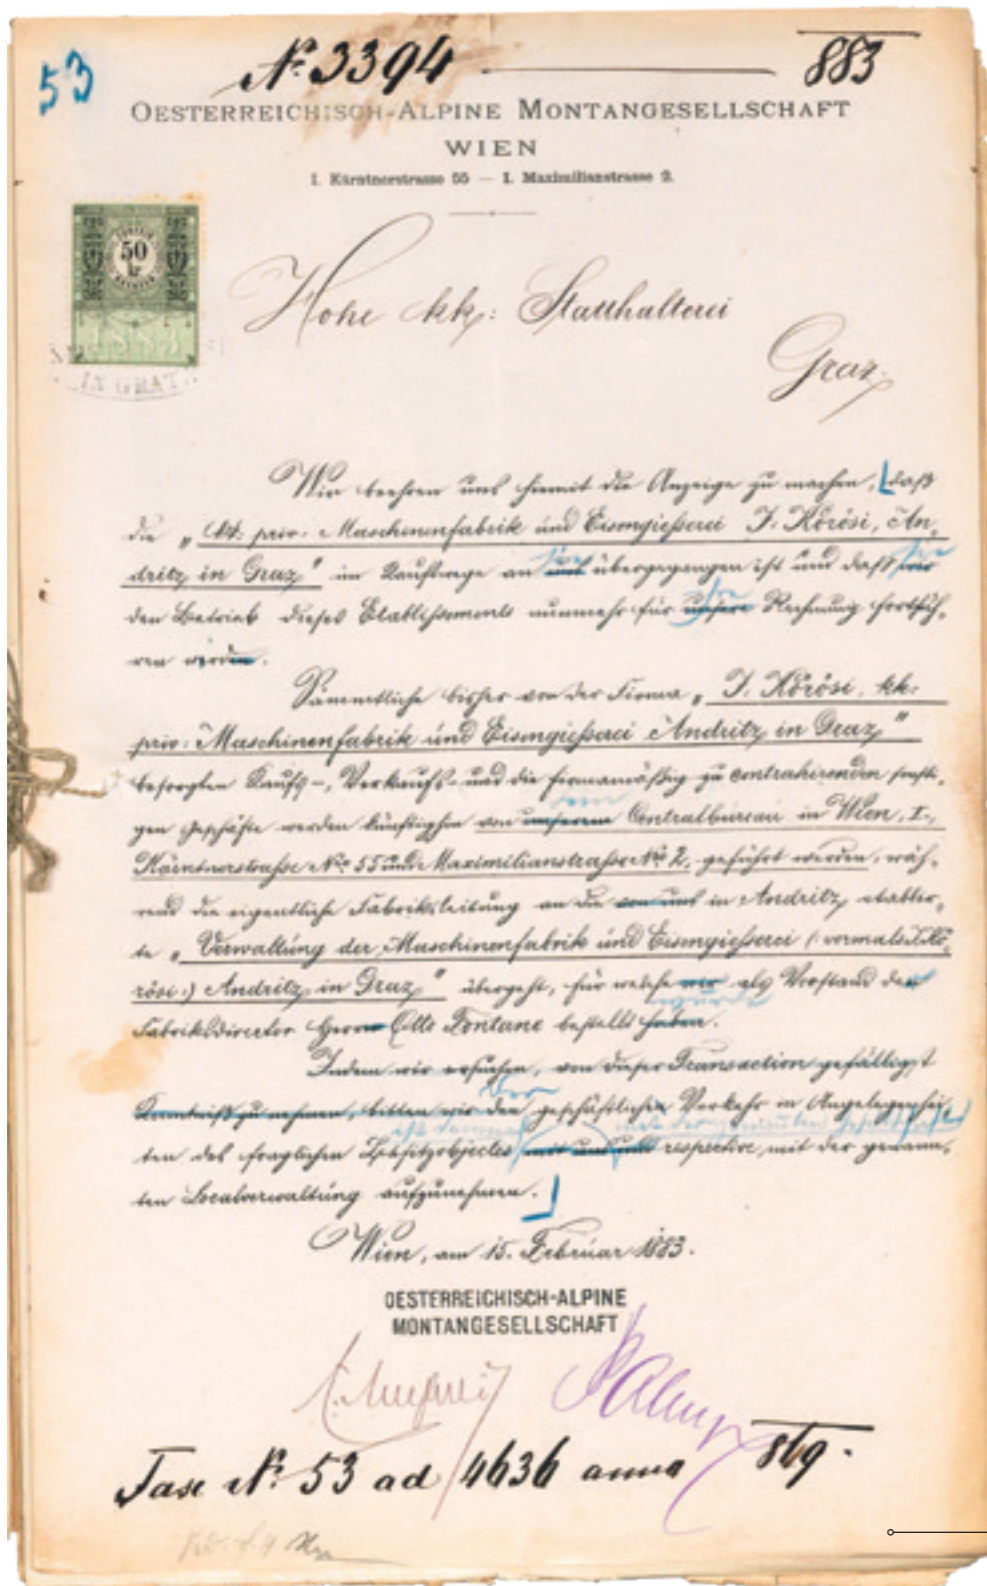 53
No. 3394 — 883
OESTERREICHISCH-ALPINE MONTANGESELLSCHAFT
WIEN
I. Kärntnerstrasse 55 — I. Maximilianstrasse 2.
50
kr
1883
IN GRATZ
Hohe kk: Statthalterei
Graz.
Wir beehren uns hiemit die Anzeige zu machen, daß
die „kk. priv. Maschinenfabrik und Eisengießerei J. Körösi, An-
dritz in Graz" im Kaufwege an uns sie übergegangen ist und daß wir sie
den Betrieb dieses Etablissements nunmehr für unsere ihre Rechnung fortfüh-
ren werden.
Sämmtliche bisher von der Firma „J. Körösi, kk:
priv: Maschinenfabrik und Eisengießerei Andritz in Graz"
besorgten Kaufs-, Verkaufs- und die firmamäßig zu contrahirenden sonsti-
gen Geschäfte werden künftighin von unserem dem Centralbureau in Wien, I.,
Kärntnerstraße No. 55 und Maximilianstraße No. 2, geführt werden, wäh-
rend die eigentliche Fabriksleitung an die von uns in Andritz etablir-
te „Verwaltung der Maschinenfabrik und Eisengießerei (: vormals J. Kö-
rösi :) Andritz in Graz" übergeht, für welche wir als Vorstand den
Fabriksdirector Herrn Otto Fontane bestellt haben. wurde
Indem wir ersuchen, von dieser Transaction gefälligst
Kenntniß zu nehmen, bitten wir den der geschäftlichen Verkehr in Angelegenhei-
ten des fraglichen Besitzobjectes mit uns und respective mit der genann-
ten Localverwaltung aufzunehmen.
Wien, am 15. Februar 1883.
OESTERREICHISCH-ALPINE
MONTANGESELLSCHAFT
Fasc No. 53 ad 4636 anno 869.